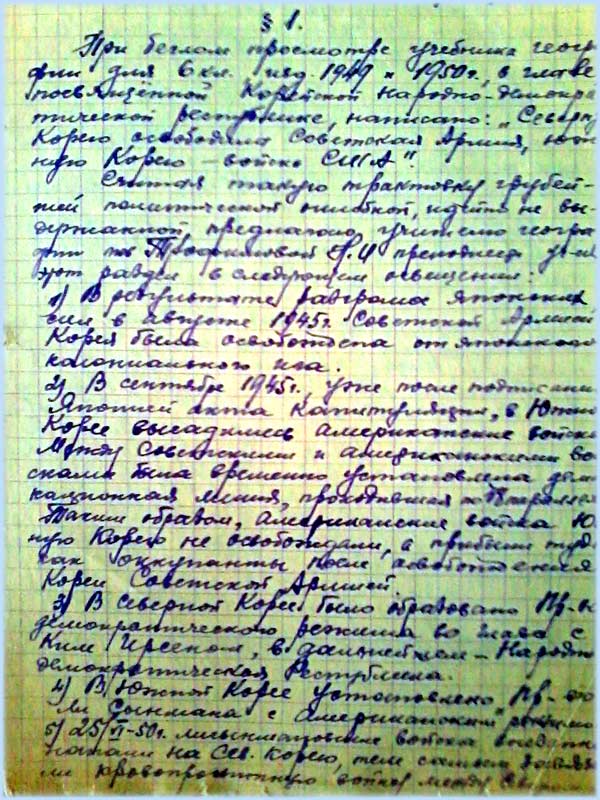 § 1.
При беглом просмотре учебника геогра
фии для 6 кл. изд. 1949 и 1950 г., в главе
посвященной Корейской Народно-демокра
тической республике, написано: „Северную
Корею освободила Советская Армия, юж
ную Корею – войска США".
Считая такую трактовку грубей-
шей политической ошибкой, идейно не вы-
держанной, предлагаю учителю геогра
фии т. Трофимовой преподнести
этот раздел в следующем освещении:
1) В результате разгрома японских
сил в августе 1945 г. Советской Армией
Корея была освобождена от японского
колониального ига.
2) В сентябре 1945 г., уже после подписания
Японией акта капитуляции, в Южной
Корее высадились американские войска
Между советскими и американскими вой
сками была временно установлена демар
кационная линия, проходившая по
Таким образом, американские войска Юж
ную Корею не освобождали, а прибыли туда
как оккупанты после освобождения
Кореи Советской Армией.
3) В Северной Корее было образовано Пр-во
демократического режима во главе с
Ким Ирсеном, в дальнейшем – Народно
демократическая Республика.
4) В Южной Корее установлено Пр-во
Ли Сынмана с Американским режимом
5) 25/VI-50 г. лисынмановские войска
напали на Сев. Корею, тем самым развяза
ли кровопролитную войну между